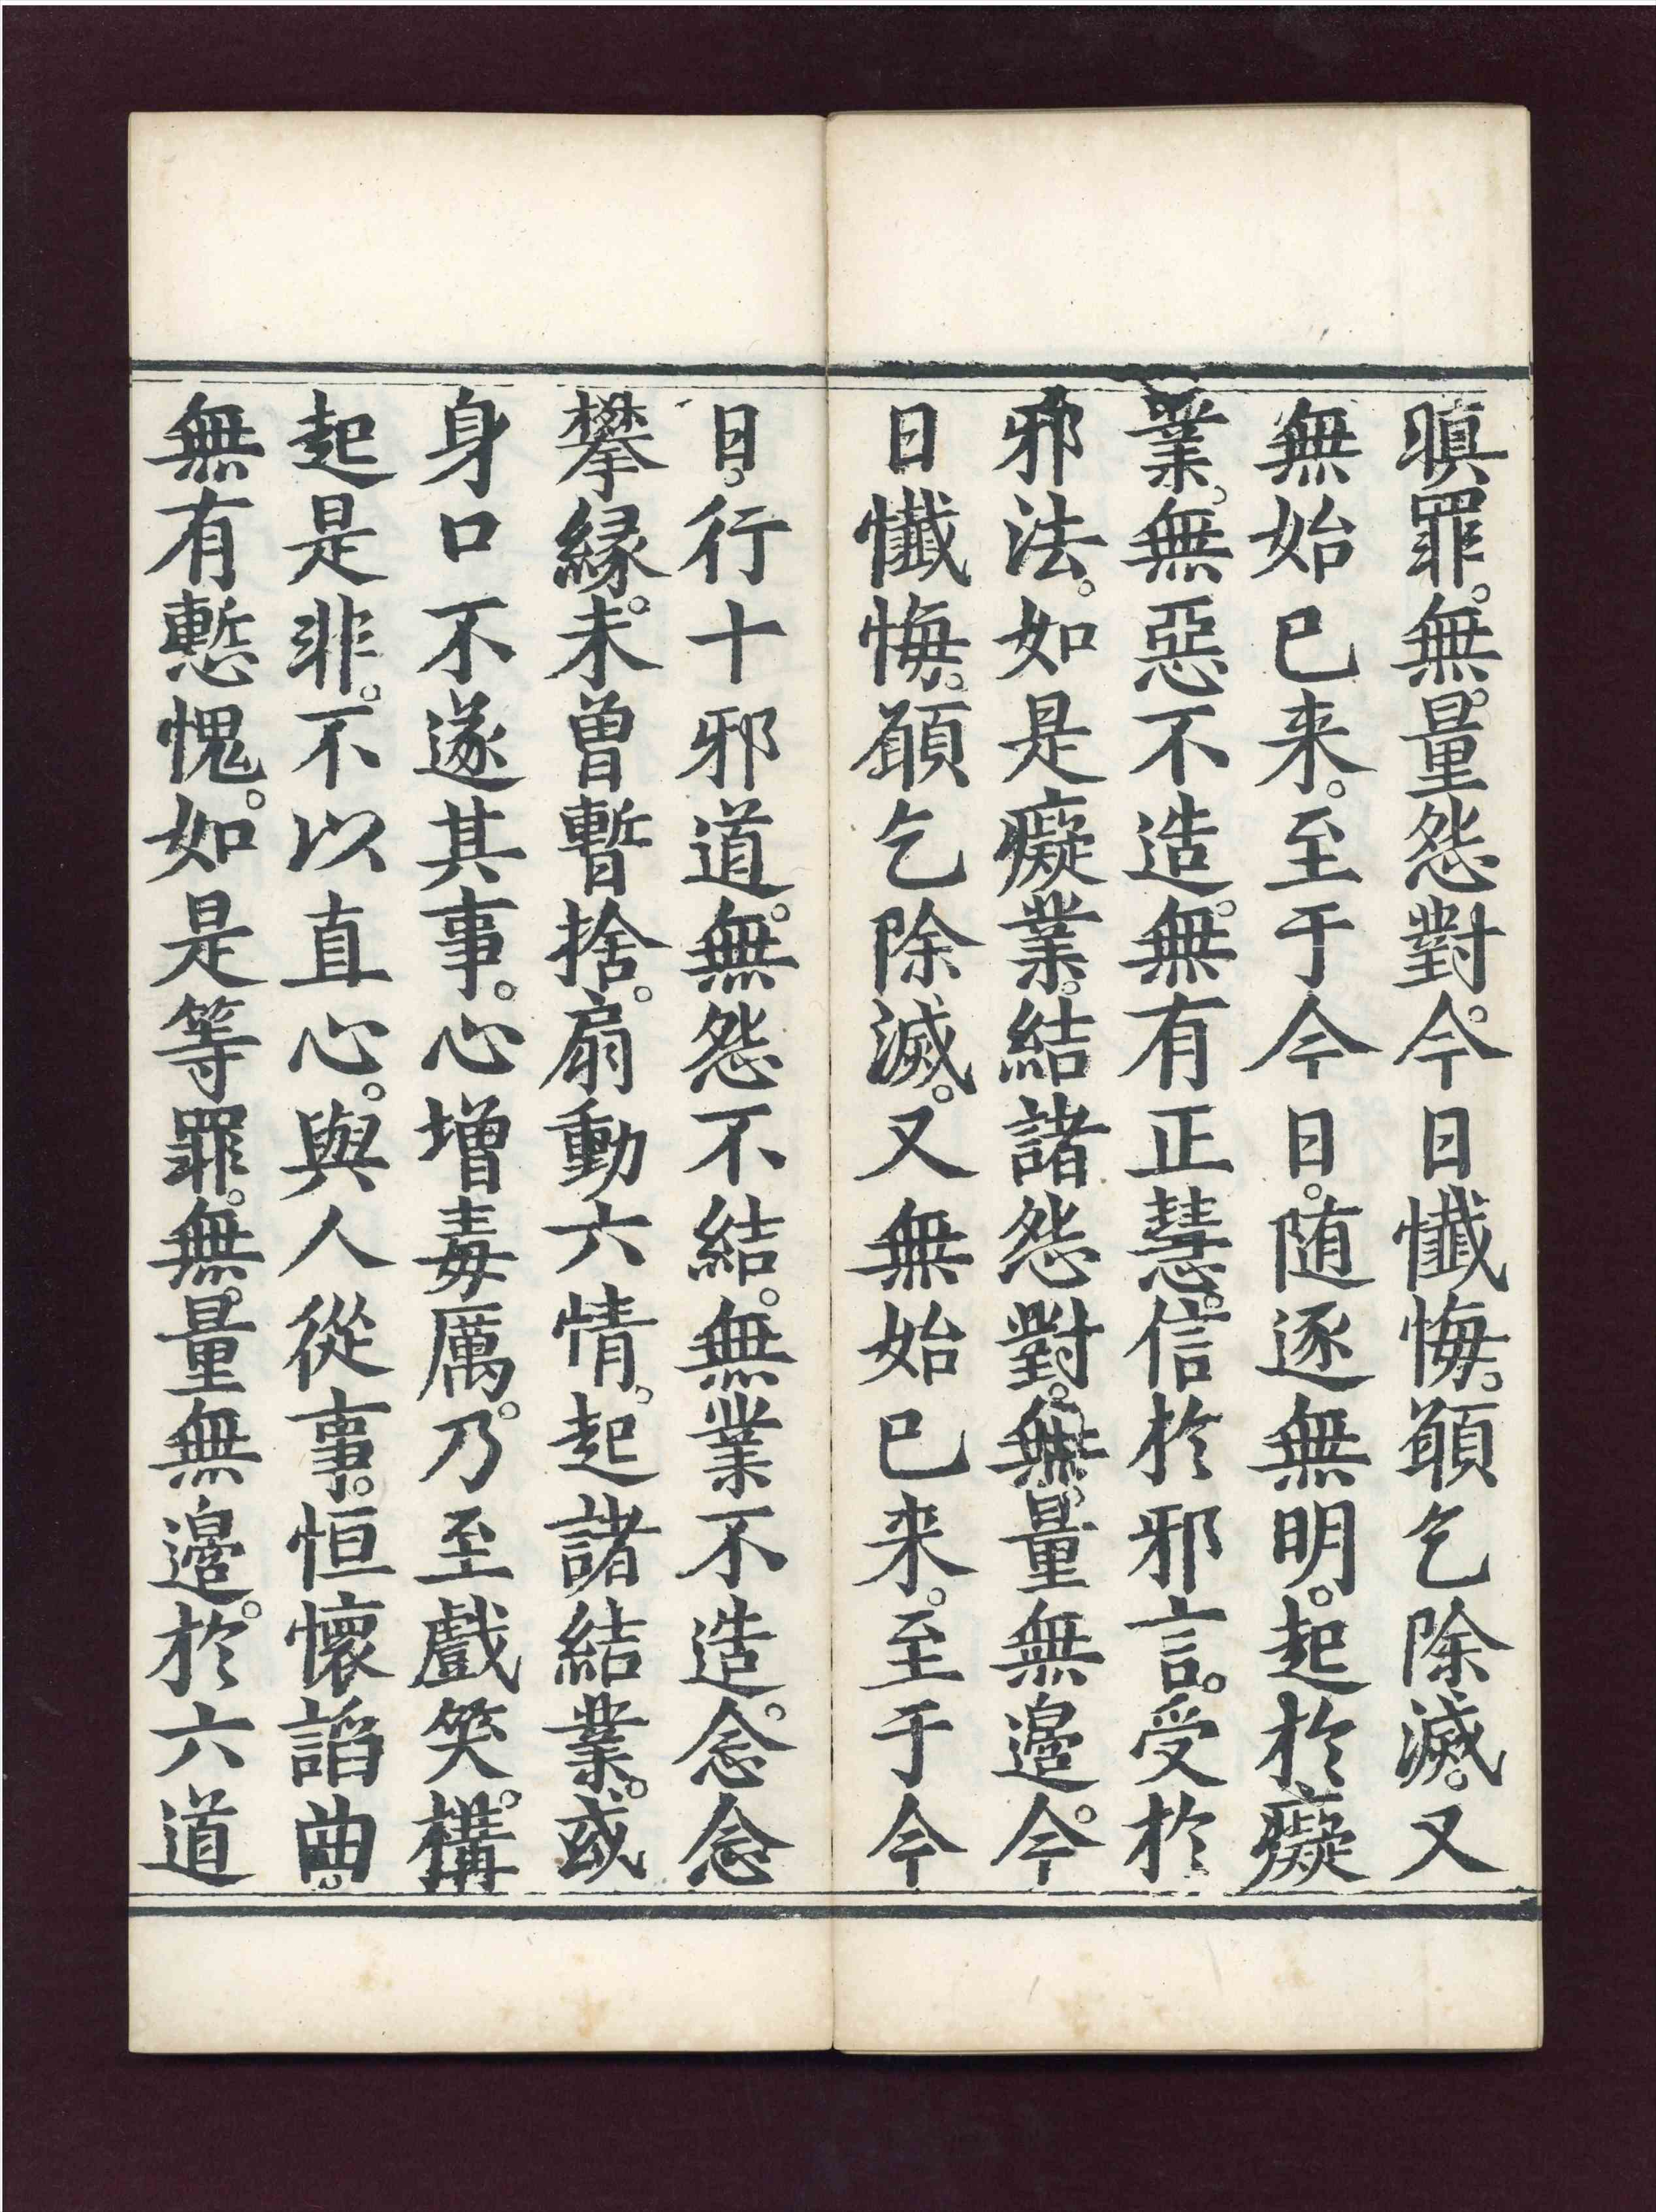 瞋罪。無量怨對。今日懺悔。願乞除滅。又
無始已来。至于今日。随逐無明。起於癡
業。無惡不造。無有正慧。信於邪言。受於
邪法。如是癡業。結諸怨對。無量無邊。今
日懺悔。願乞除滅。又無始已来。至于今
日。行十邪道。無怨不結。無業不造。念念
攀縁。未曾暫捨。扇動六情。起諸結業。或
身口不遂其事。心増毒厲。乃至戲笑。構
起是非。不以直心。與人從事。恒懷諂曲。
無有慙愧。如是等罪。無量無邊。於六道